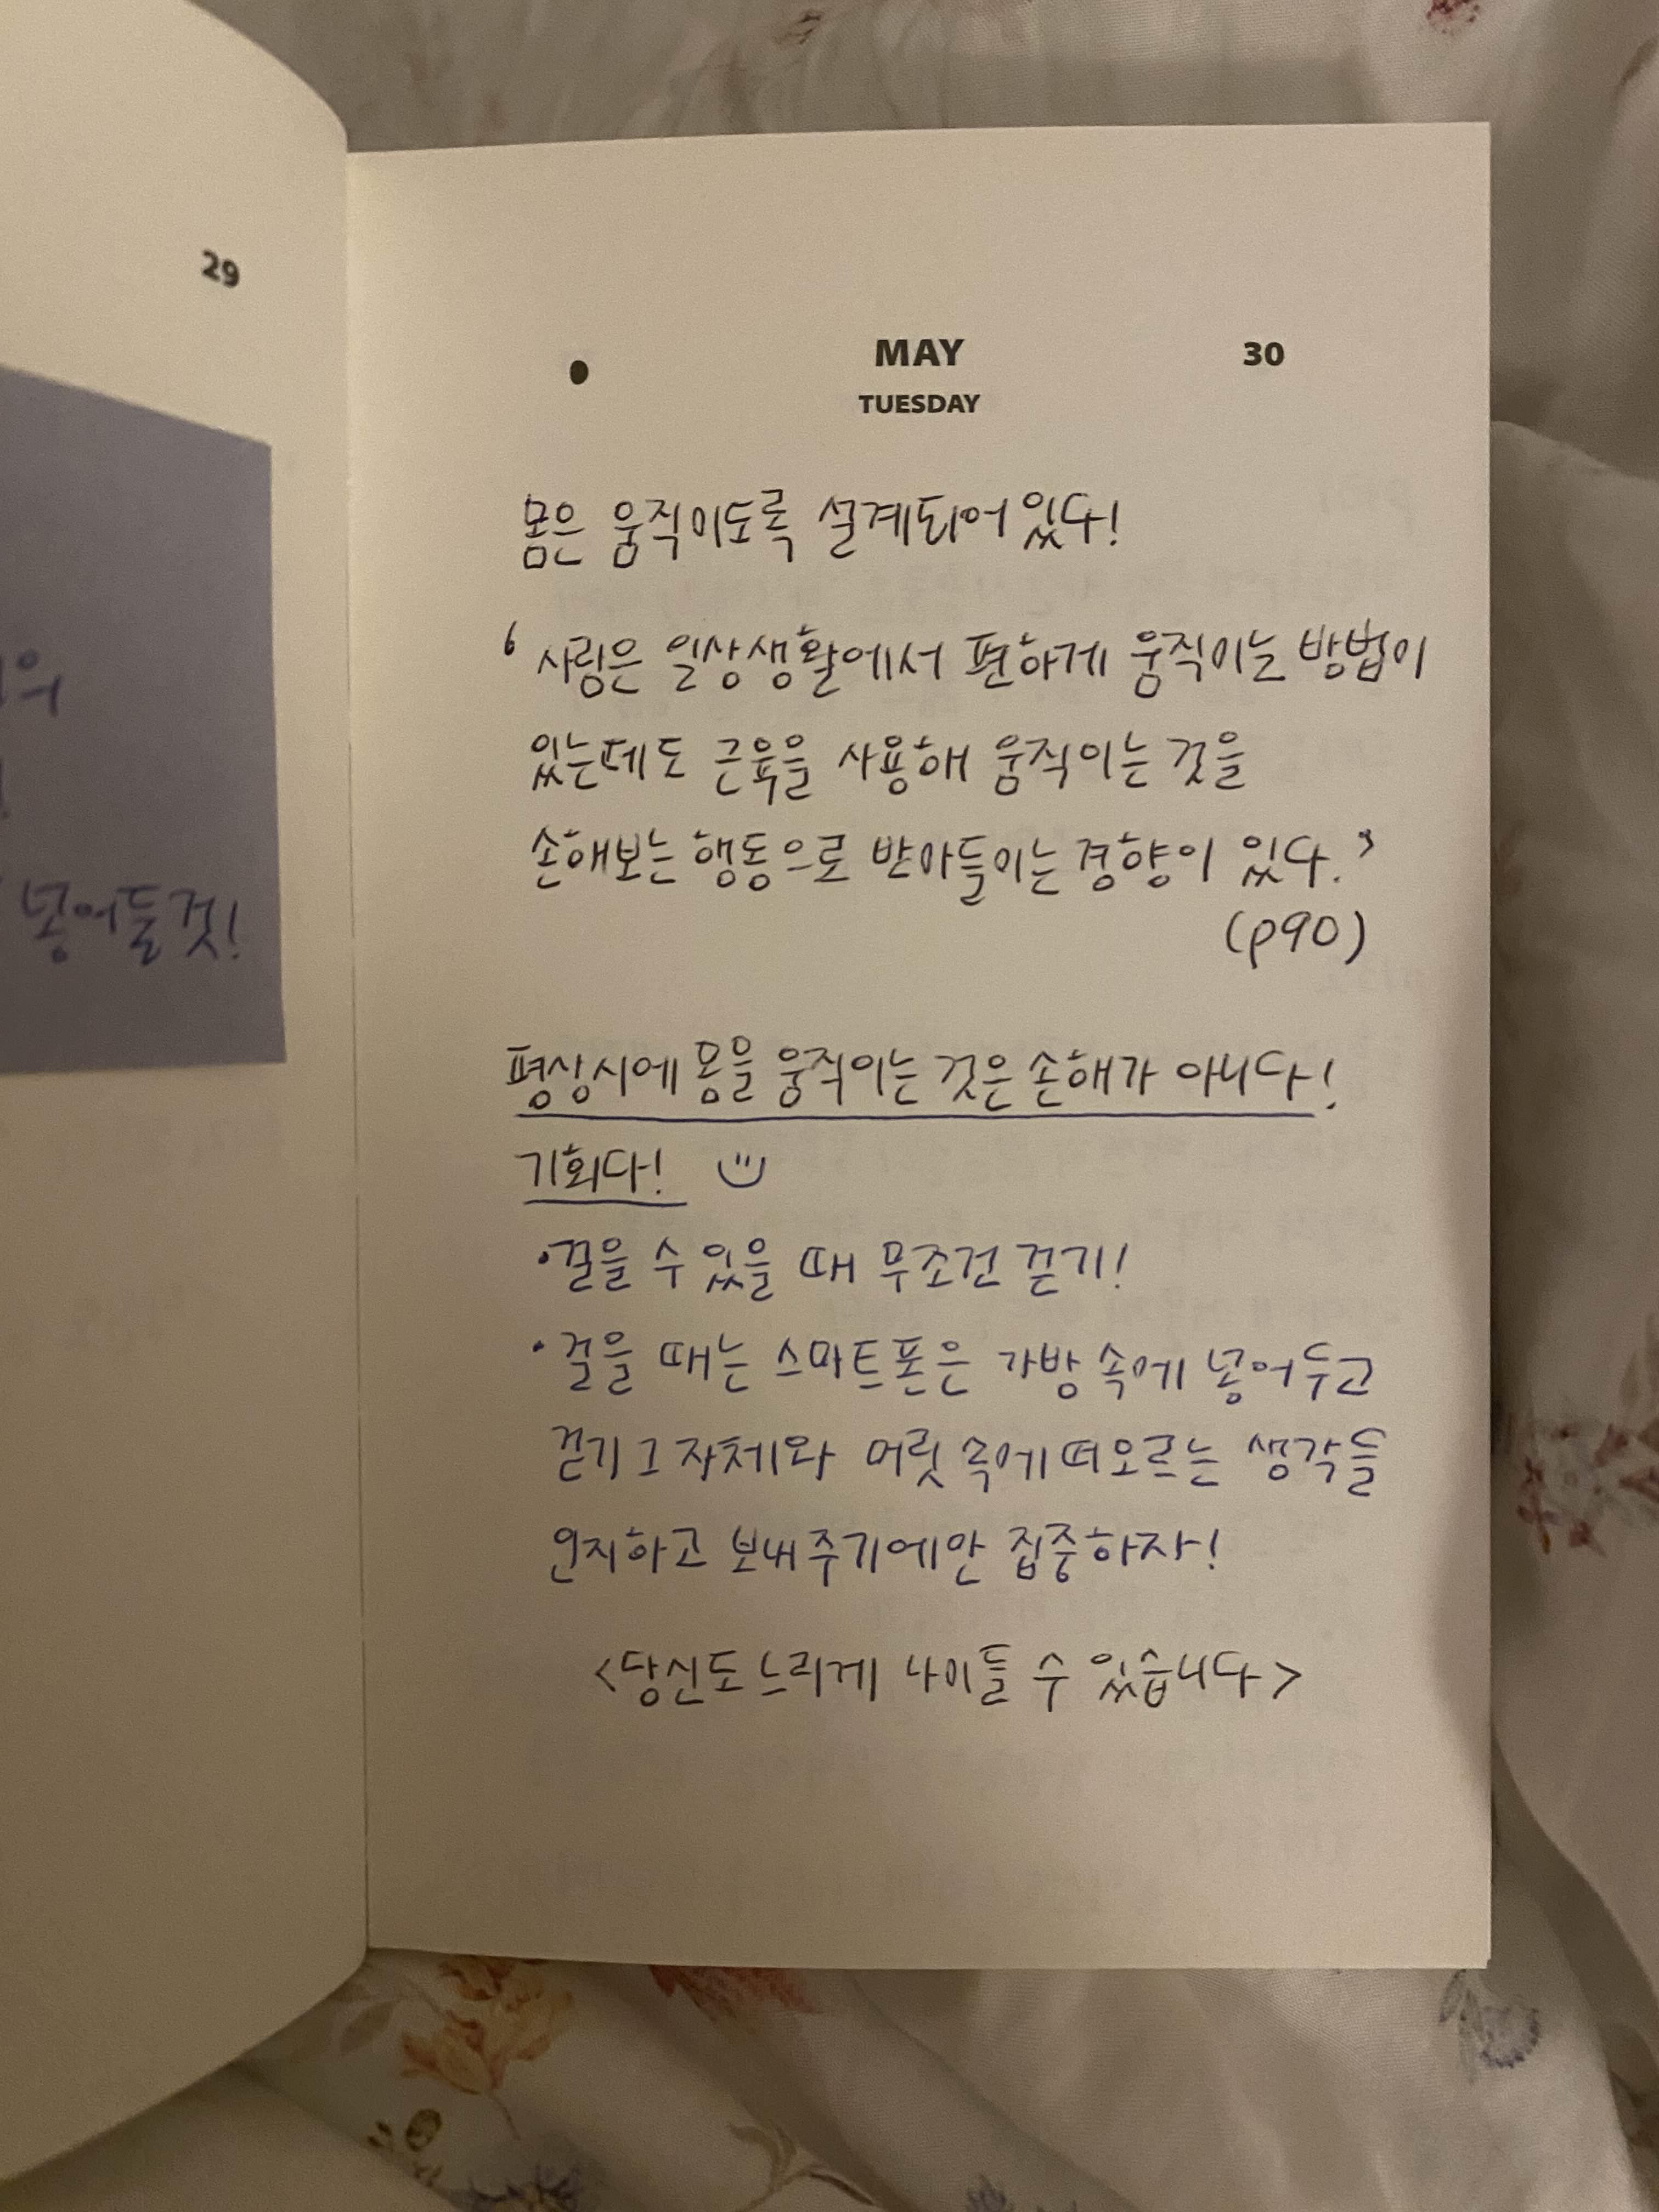 29
의
넣어둘 것!
MAY
30
TUESDAY
몸은 움직이도록 설계되어 있다!
' 사람은 일상생활에서 편하게 움직이는 방법이
있는데도 근육을 사용해 움직이는 것을
손해보는 행동으로 받아들이는 경향이 있다.'
(p90)
평상시에 몸을 움직이는 것은 손해가 아니다!
기회다!
• 걸을 수 있을 때 무조건 걷기!
• 걸을 때는 스마트폰은 가방 속에 넣어두고
걷기 그 자체와 머릿 속에 떠오르는 생각들
인지하고 보내주기에만 집중하자!
<당신도 느리게 나이들 수 있습니다>